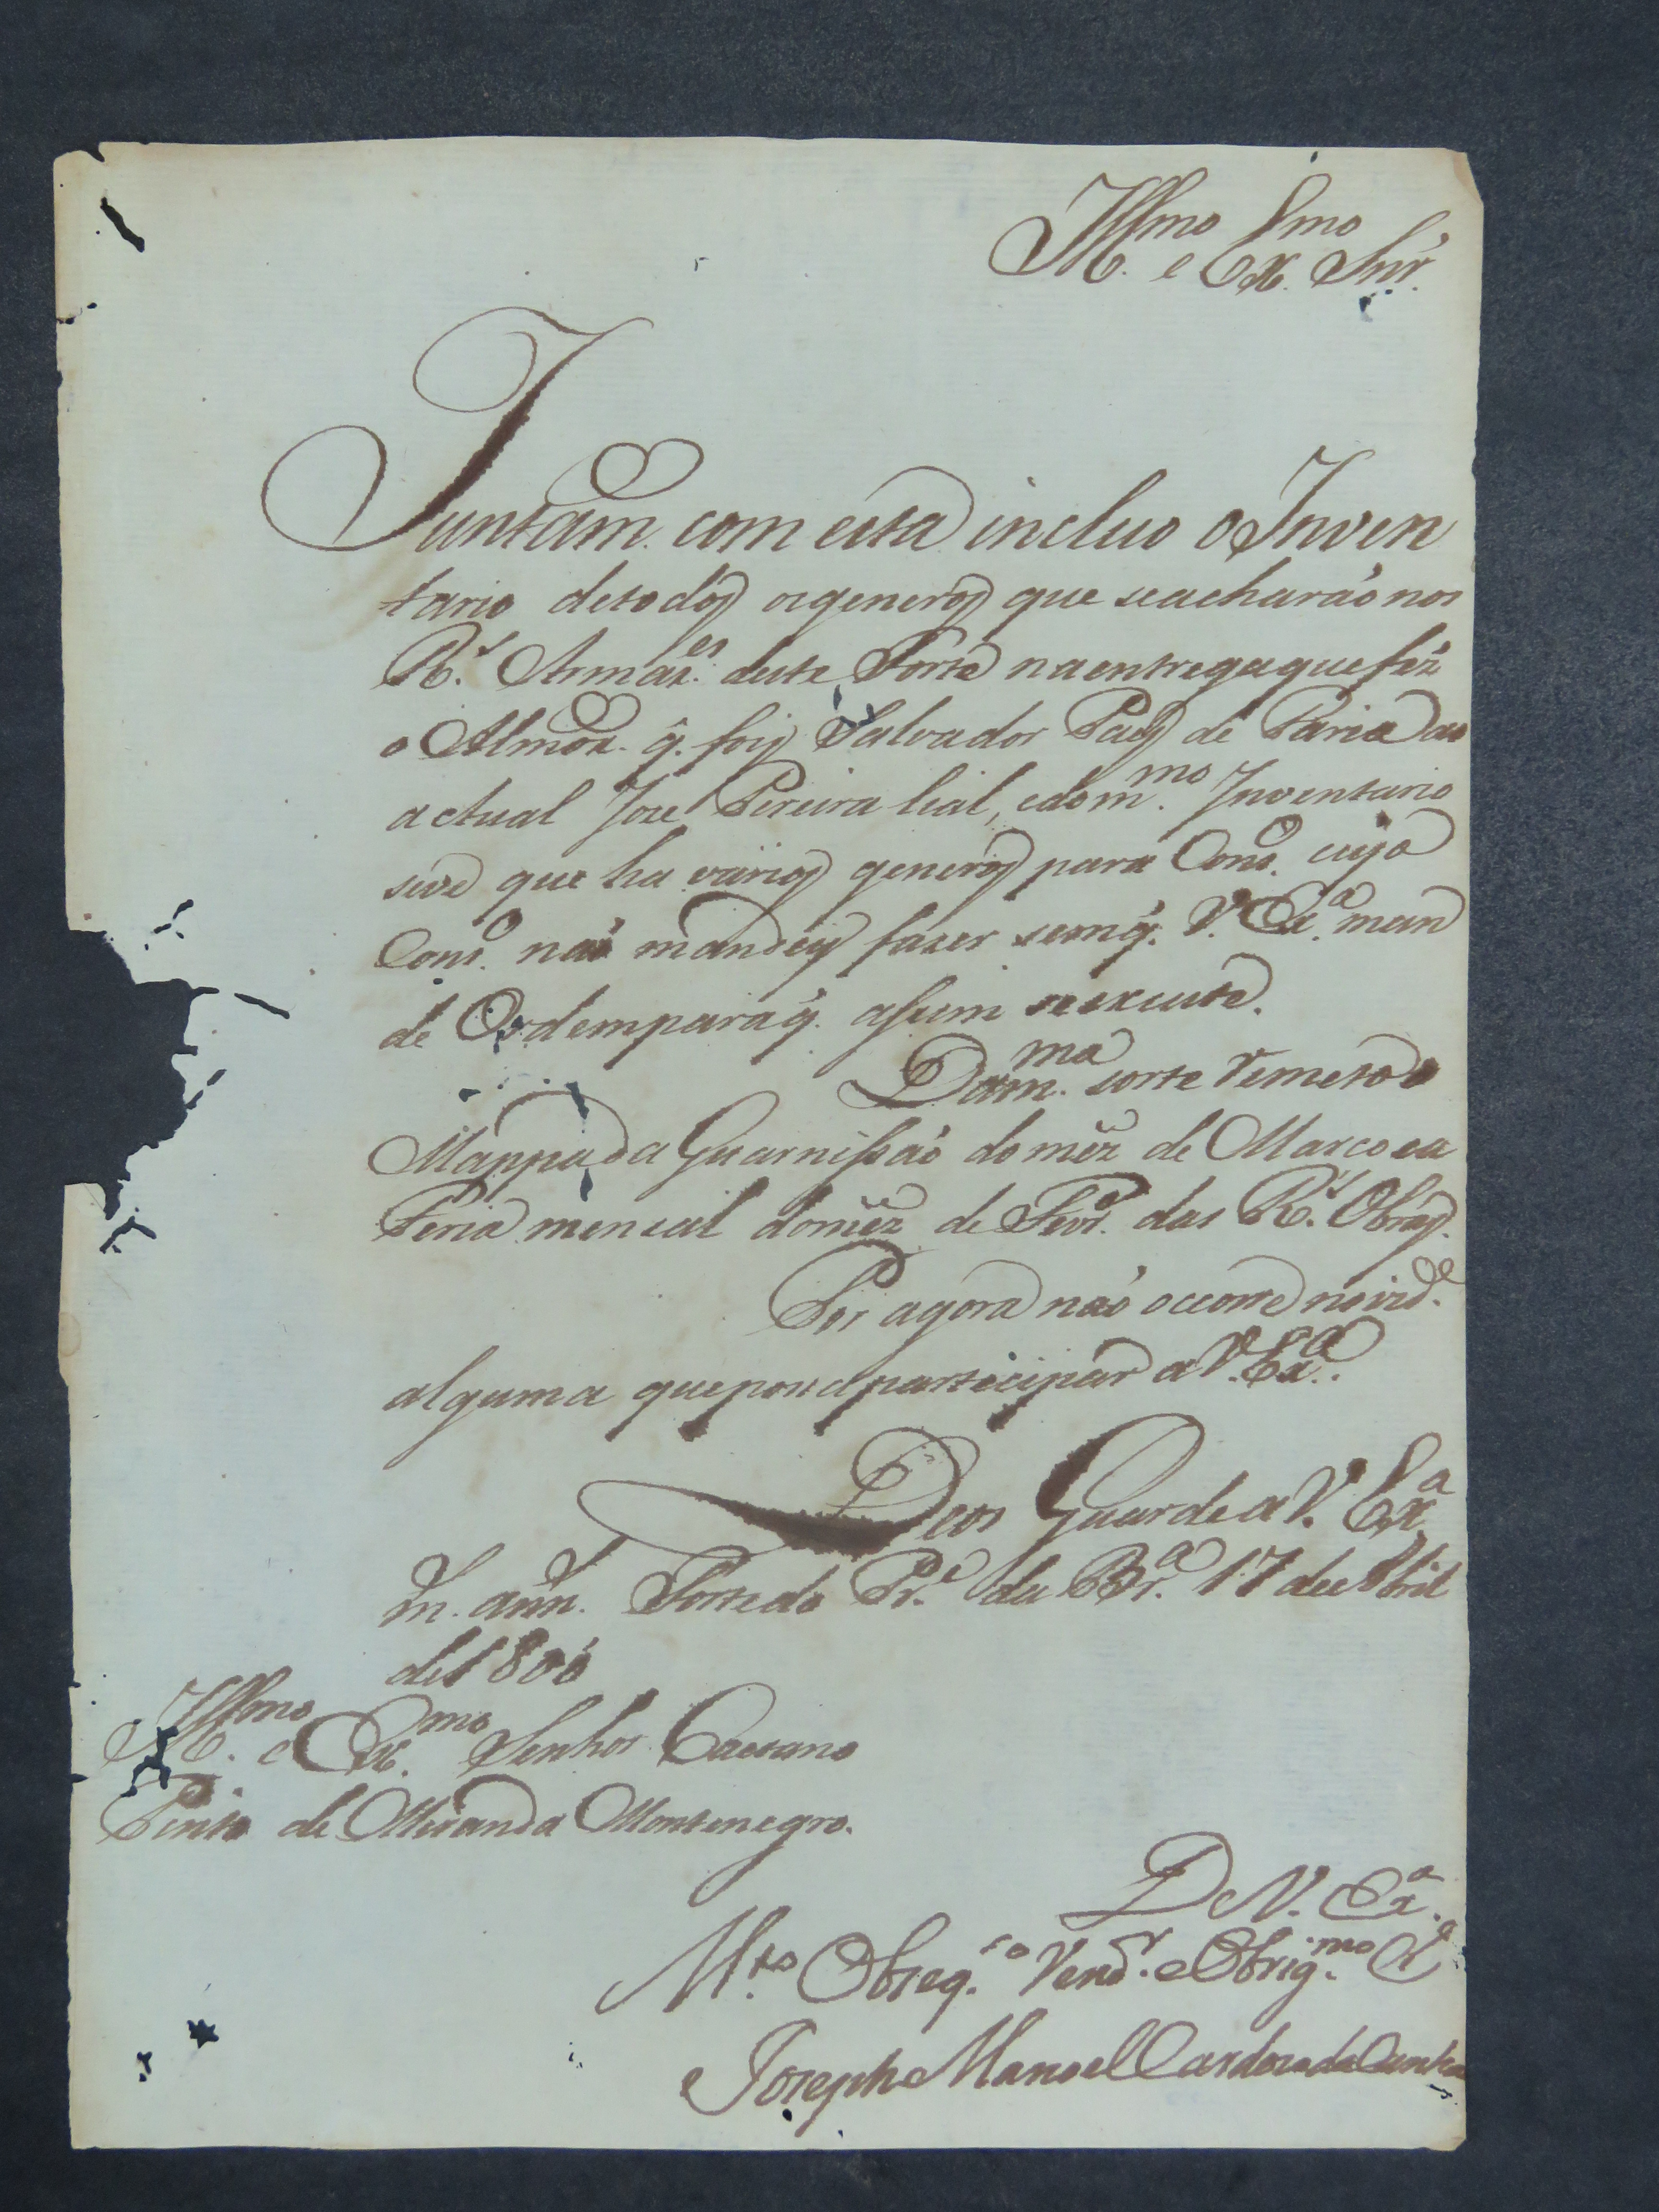 Ill.mo e Ex.mo Snr.
Juntam. com esta incluo o Inven
tario detodos osgeneros que seacharáo nos
R.s Armaz.es deste Forte naentregaquefez
o Almox. q̃. foy Salvador Paes de Faria ao
actual Joze Pereira lial, edom.mo Inventario
seve que ha varios generos para Cons.o cujo
Cons.o naó mandey fazer semq̃. V. Ex.a man
de Ordemparaq̃. assim seexcute.
Dam.ma sorte remeto o
Mappa da Guarnissaó domêz de Marco ea
Feria mensal domêz de Fevr.o das R.s Obras.
Por agora naó occorre novid.e
alguma queposa participar a V. Ex.a.
Deos Guarde a V. Ex.a
m. ann. Forte do Pr.e da Br.a 17 de Abril
de 1800
Ill.mo e Ex.mo Senhor Caetano
Pinto de Miranda Montenegro.
De V. Ex.a
M.to Obseq.so Vend.r e Obrig.mo C.o
Joseph Manoel Cardoso da Cunha